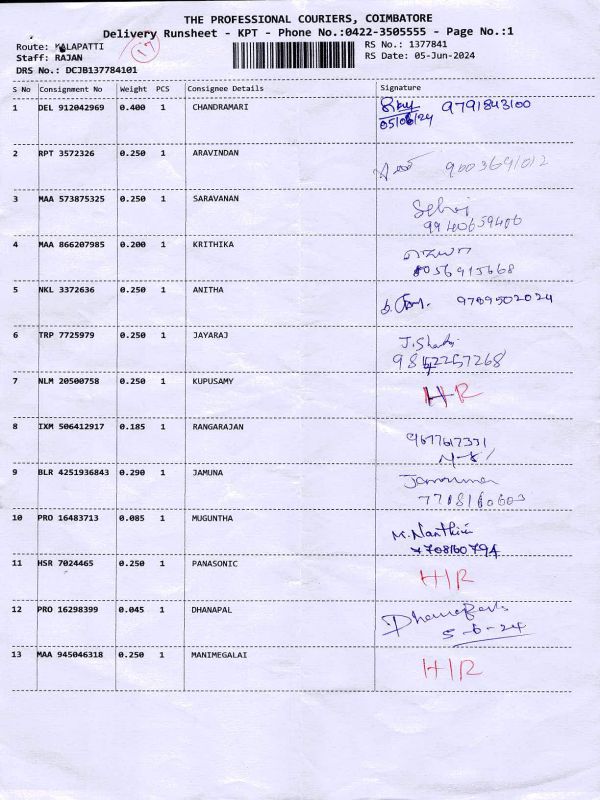 THE PROFESSIONAL COURIERS, COIMBATORE
Delivery Runsheet - KPT - Phone No.:0422-3505555 - Page No.:1
Route: KALAPATTI
17
RS No.: 1377841
Staff: RAJAN
RS Date: 05-Jun-2024
DRS No.: DCJB137784101
S No Consignment No Weight PCS Consignee Details Signature
1 DEL 912042969 0.400 1 CHANDRAMARI 9791843100
05/06/24
2 RPT 3572326 0.250 1 ARAVINDAN 9003691012
3 MAA 573875325 0.250 1 SARAVANAN Selvi
9940659406
4 MAA 866207985 0.200 1 KRITHIKA
8056915668
5 NKL 3372636 0.250 1 ANITHA 9789502024
6 TRP 7725979 0.250 1 JAYARAJ
7 NLM 20500758 0.250 1 KUPUSAMY HR
8 IXM 506412917 0.185 1 RANGARAJAN 9677617331
9 BLR 4251936843 0.290 1 JAMUNA
7708160603
10 PRO 16483713 0.085 1 MUGUNTHA M. Nanthini
7708160794
11 HSR 7024465 0.250 1 PANASONIC HIR
12 PRO 16298399 0.045 1 DHANAPAL
5-6-24
13 MAA 945046318 0.250 1 MANIMEGALAI HIR